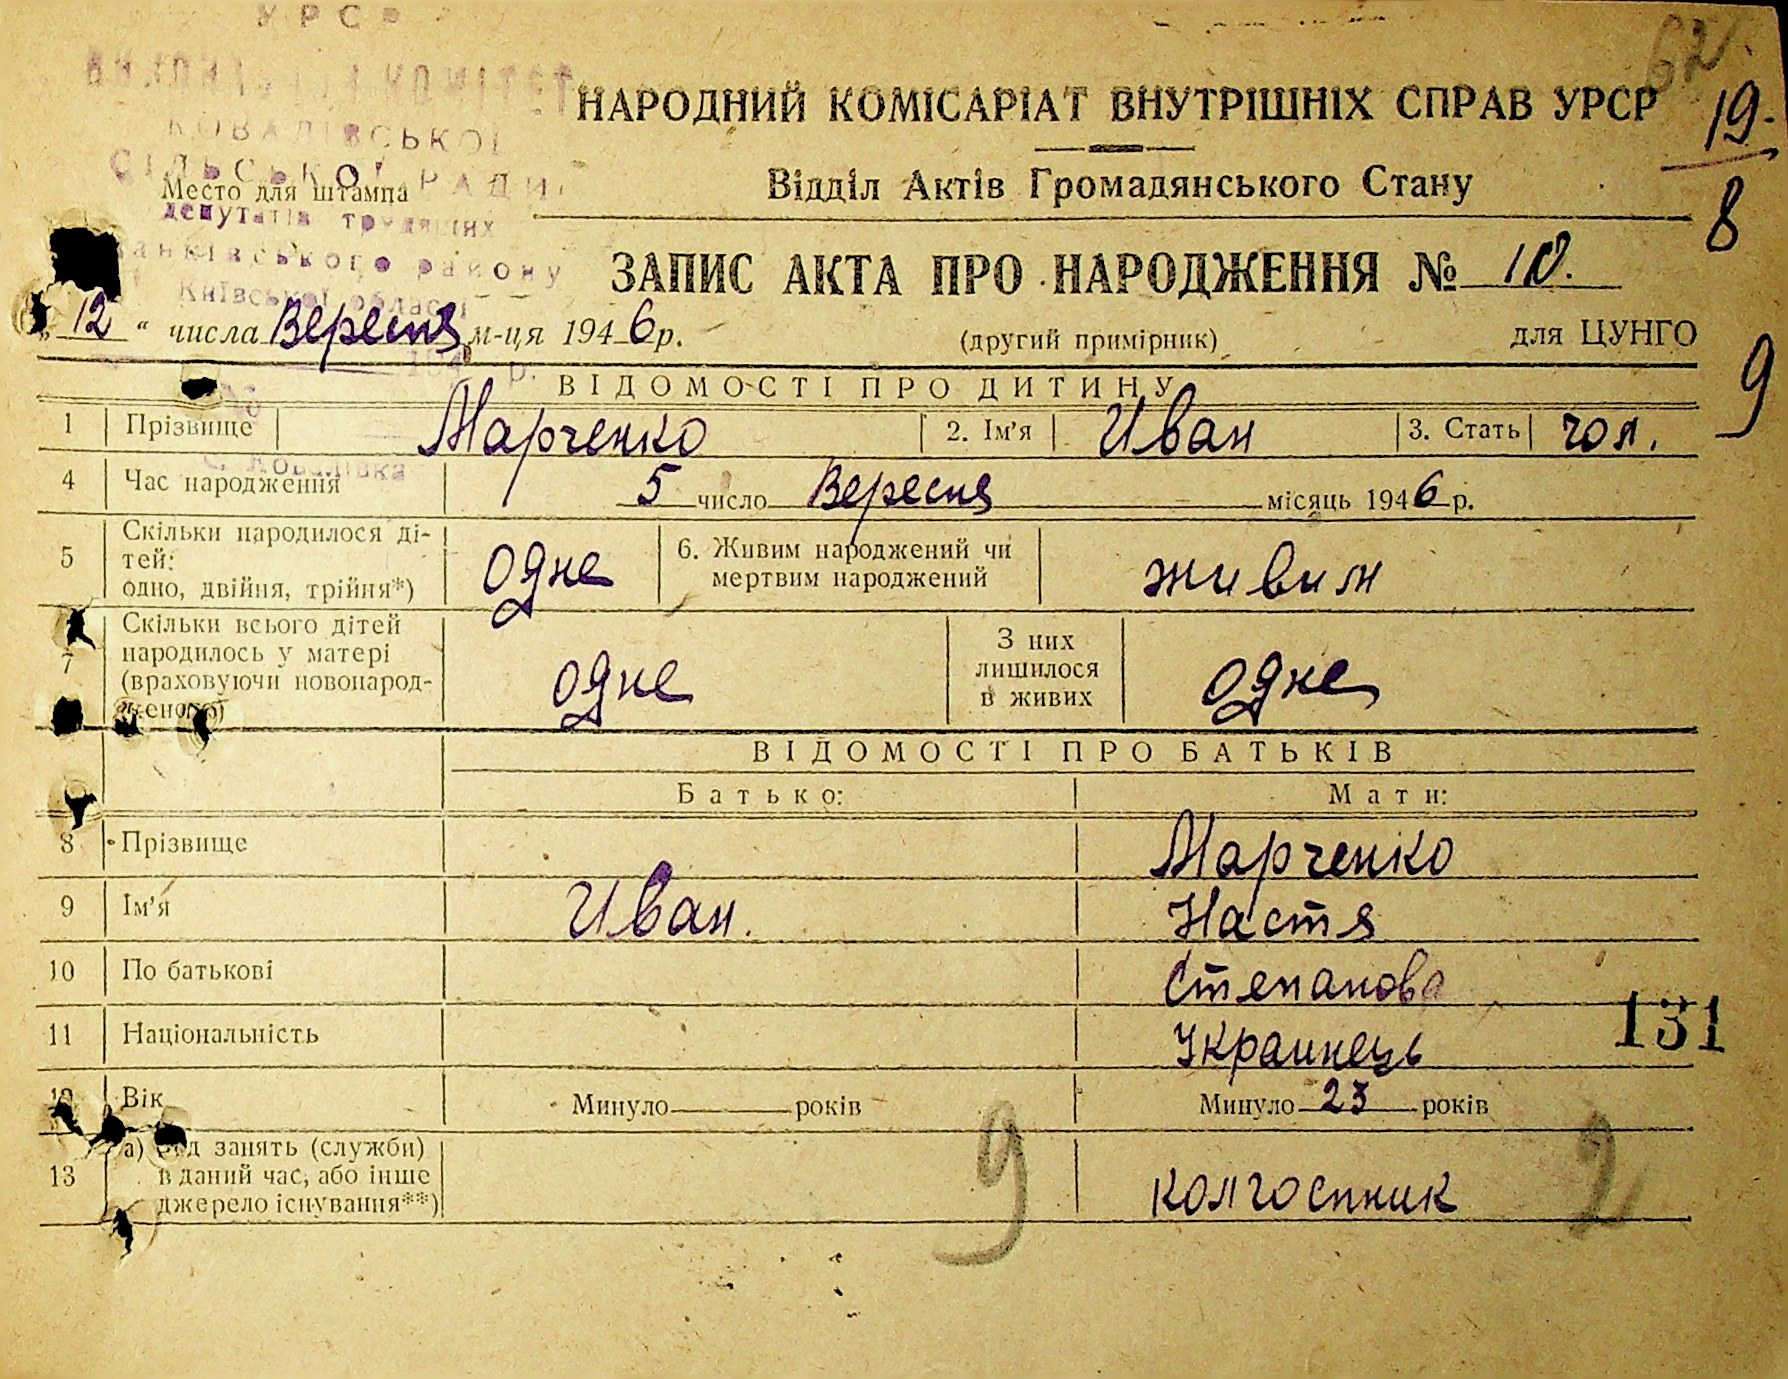 УРСР
КОВАЛІВСЬКОЇ
СІЛЬСЬКОЇ РАДИ
депутатів трудящих
району
Київської області
с. Ковалівка
Место для штампа
62
19
8
9
НАРОДНИЙ КОМІСАРІАТ ВНУТРІШНІХ СПРАВ УРСР
Відділ Актів Громадянського Стану
ЗАПИС АКТА ПРО НАРОДЖЕННЯ № 10.
„12“ числа Вересня м-ця 1946 р. (другий примірник) для ЦУНГО
ВІДОМОСТІ ПРО ДИТИНУ
1 Прізвище Марченко 2. Ім'я Иван 3. Стать чол.
4 Час народження 5 число Вересня місяць 1946 р.
5 Скільки народилося ді-
тей:
одно, двійня, трійня*) одне 6. Живим народжений чи
мертвим народжений живим
7 Скільки всього дітей
народилось у матері
(враховуючи новонарод-
женого) одне З них
лишилося
в живих одне
ВІДОМОСТІ ПРО БАТЬКІВ
Батько: Мати:
8 Прізвище Марченко
9 Ім'я Иван. Настя
10 По батькові Степанова
11 Національність Украинець
131
12 Вік Минуло років Минуло 23 років
13 а) Рід занять (служби)
в даний час, або інше
джерело існування**) колгоспник
9
2